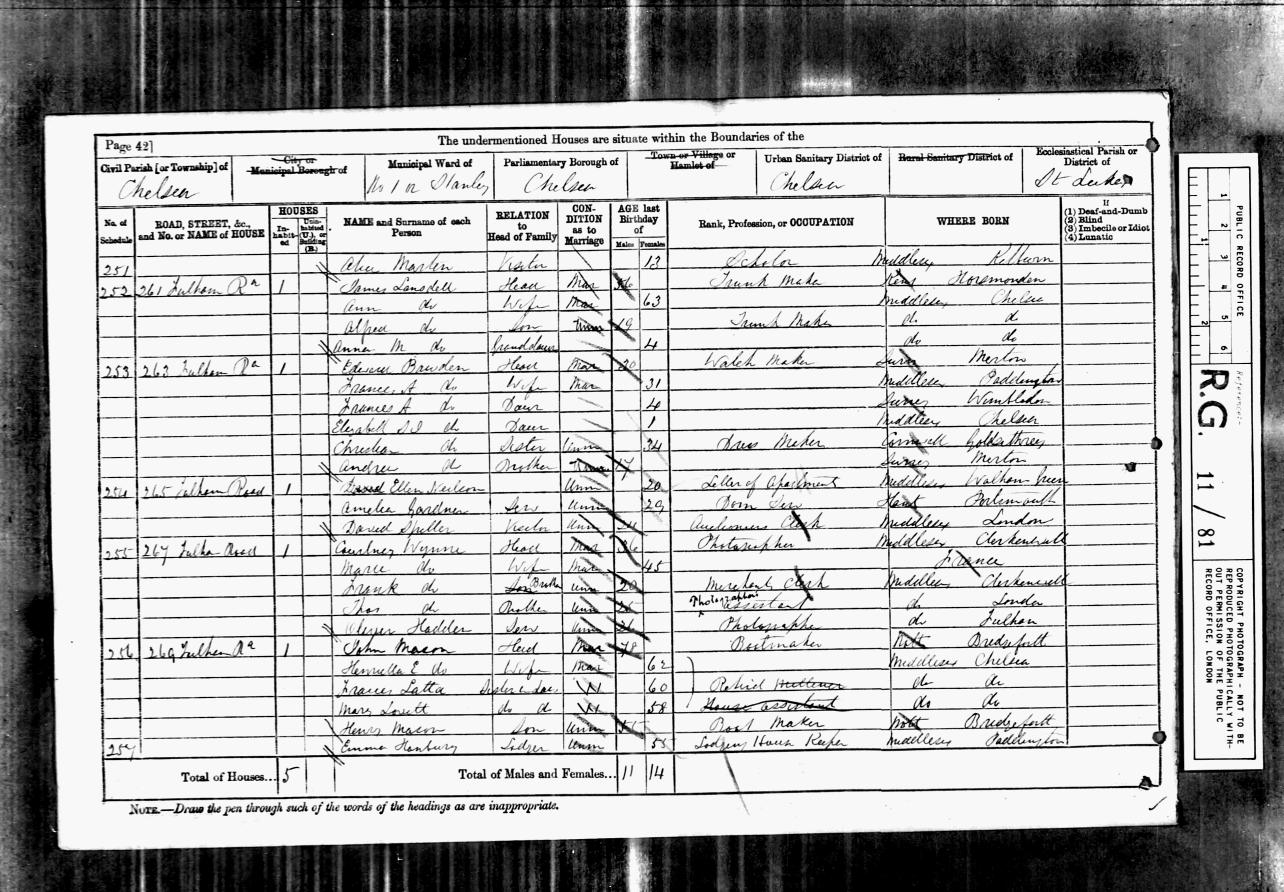 Page 42]
The undermentioned Houses are situate within the Boundaries of the
Civil Parish [or Township] of City or Municipal Borough of Municipal Ward of Parliamentary Borough of Town or Village or Hamlet of Urban Sanitary District of Rural Sanitary District of Ecclesiastical Parish or District of
Chelsea No 1 or Stanley Chelsea Chelsea St Lukes
No. of Schedule ROAD, STREET, &c., and No. or NAME of HOUSE HOUSES Inhabited Uninhabited (U.), or Building (B.) NAME and Surname of each Person RELATION to Head of Family CONDITION as to Marriage AGE last Birthday of Males Females Rank, Profession, or OCCUPATION WHERE BORN If (1) Deaf-and-Dumb (2) Blind (3) Imbecile or Idiot (4) Lunatic
251 Alice Marten Visitor 13 Scholar Middlesex Kilburn
252 261 Fulham Rd 1 James Lansdell Head Mar Trunk Maker Kent Horsmonden
Ann do Wife Mar 63 Middlesex Chelsea
Alfred do Son Unm 19 Trunk Maker do do
Anna M do Granddaur 4 do do
253 263 Fulham Rd 1 Edward Bawden Head Mar 30 Watch Maker Surrey Merton
Frances A do Wife Mar 31 Middlesex Paddington
Frances A do Daur 4 Surrey Wimbledon
Elizabeth do Daur 1 Middlesex Chelsea
Christian do Sister Unm 34 Dress Maker Cornwall Goldsithney
Andrew do Brother Unm 17 Surrey Merton
254 265 Fulham Road 1 Ellen Neilson Unm 20 Letter of Apartments Middlesex Walham Green
Amelia Gardner Serv Unm 29 Dom Serv Hant Portsmouth
David Speller Visitor Unm Auctioneers Clerk Middlesex London
255 267 Fulham Road 1 Courtney Wynne Head Mar 36 Photographer Middlesex Clerkenwell
Marie do Wife Mar 45 France
Frank do Son Brother Unm 20 Merchants Clerk Middlesex Clerkenwell
Thos do Brother Unm Photographers Assistant do London
Hadden Serv Unm Photographer do Fulham
256 269 Fulham Rd 1 John Mason Head Mar 78 Bootmaker Nott Bridgeforth
Henrietta E do Wife Mar 62 Middlesex Chelsea
Frances Latta Sister in law W 60 Retired Milliner do do
Mary Lovett do do W 58 House Assistant do do
Henry Mason Son Unm Boot Maker Nott Bridgeforth
257 Emma Hanbury Lodger Unm 55 Lodging House Keeper Middlesex Paddington
Total of Houses... 5 Total of Males and Females... 11 14
NOTE.—Draw the pen through such of the words of the headings as are inappropriate.
PUBLIC RECORD OFFICE
1 2 3 4 5 6
1 2
Reference:-
R.G. 11 / 81
COPYRIGHT PHOTOGRAPH - NOT TO BE REPRODUCED PHOTOGRAPHICALLY WITHOUT PERMISSION OF THE PUBLIC RECORD OFFICE, LONDON